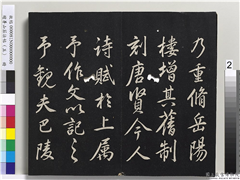 乃重脩岳陽
樓增其舊制
刻唐賢今人
詩賦於上属
予作文以記之
予觀夫巴陵
2